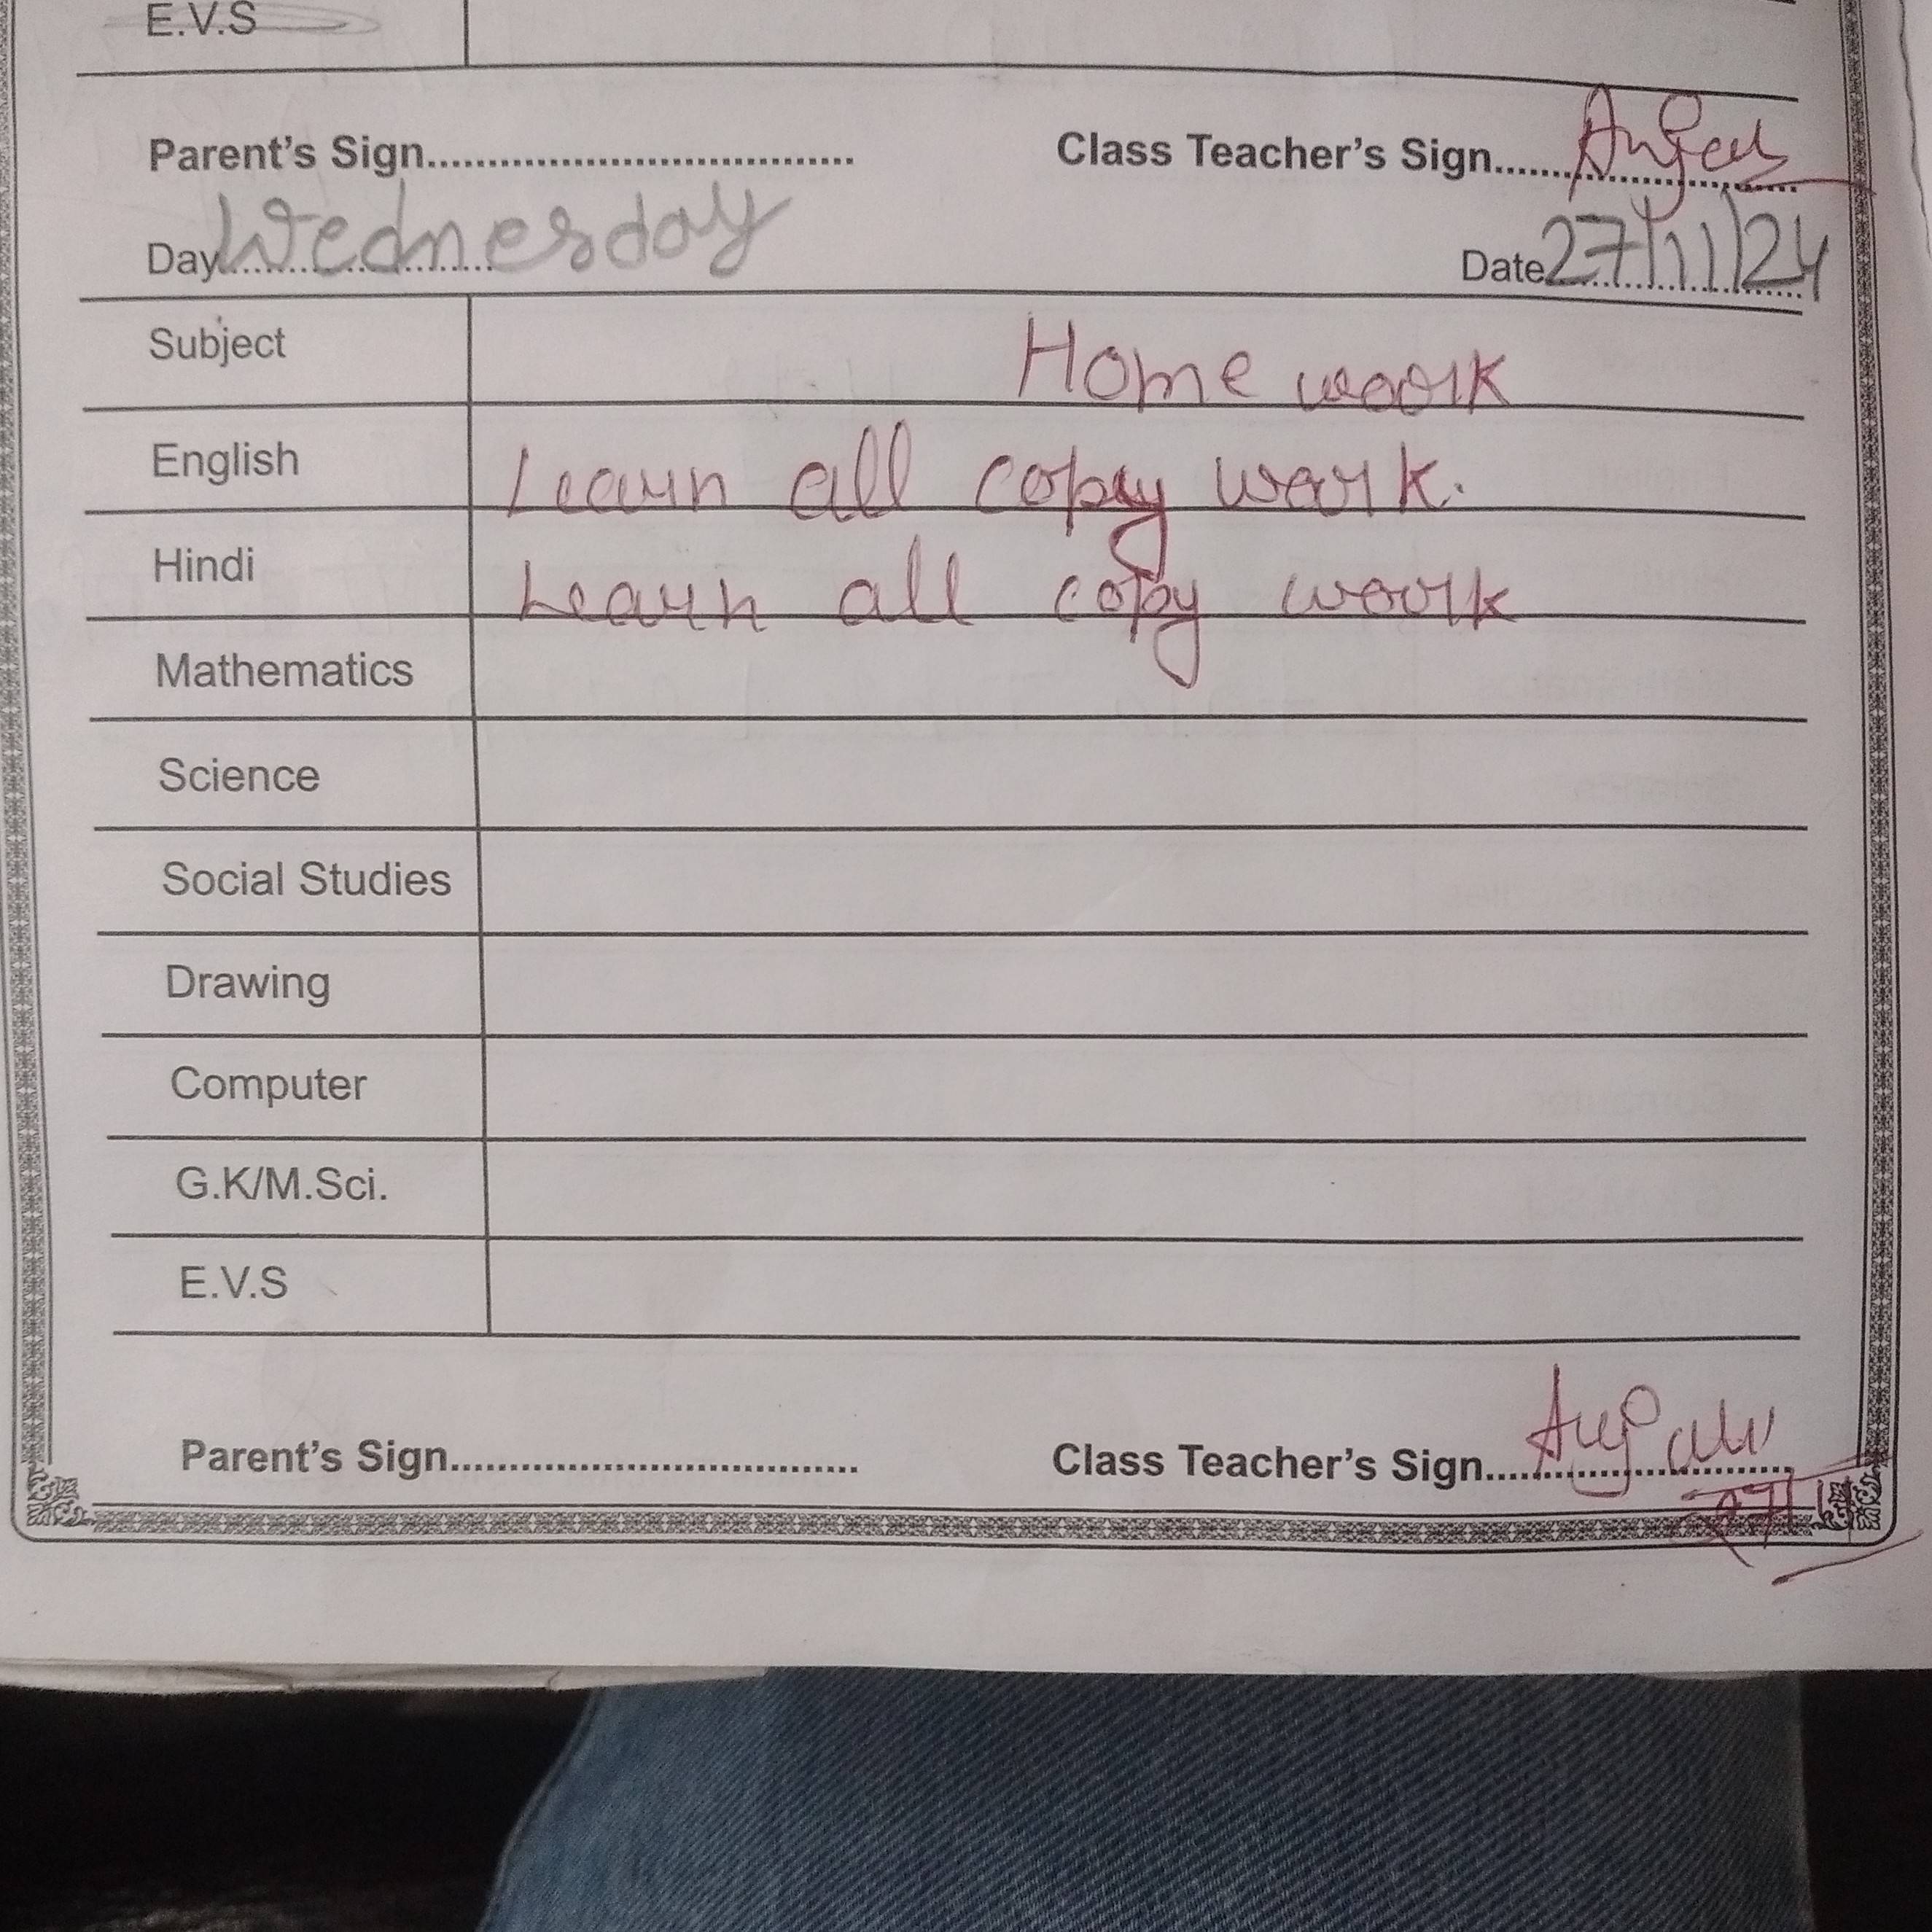 E.V.S
Parent's Sign.................................... Class Teacher's Sign..........................
Day........................ Wednesday Date 27/11/24
Subject Home work
English Learn all copy work.
Hindi Learn all copy work
Mathematics
Science
Social Studies
Drawing
Computer
G.K/M.Sci.
E.V.S
Parent's Sign.................................... Class Teacher's Sign..........................